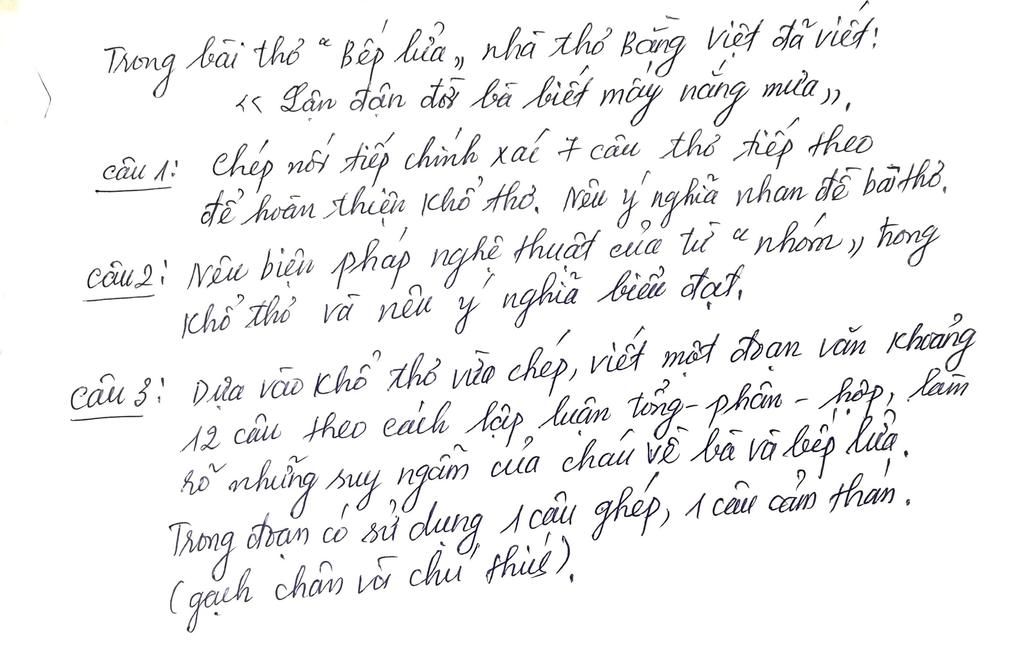 Trong bài thơ "Bếp lửa" nhà thơ Bằng Việt đã viết:
<< Lận đận đời bà biết mấy nắng mưa".
Câu 1: Chép nối tiếp chính xác 7 câu thơ tiếp theo
để hoàn thiện khổ thơ. Nêu ý nghĩa nhan đề bài thơ.
Câu 2: Nêu biện pháp nghệ thuật của từ "nhóm" trong
khổ thơ và nêu ý nghĩa biểu đạt.
Câu 3: Dựa vào khổ thơ vừa chép, viết một đoạn văn khoảng
12 câu theo cách lập luận tổng - phân - hợp, làm
rõ những suy ngẫm của cháu về bà và bếp lửa.
Trong đoạn có sử dụng 1 câu ghép, 1 câu cảm thán.
(gạch chân và chú thích).